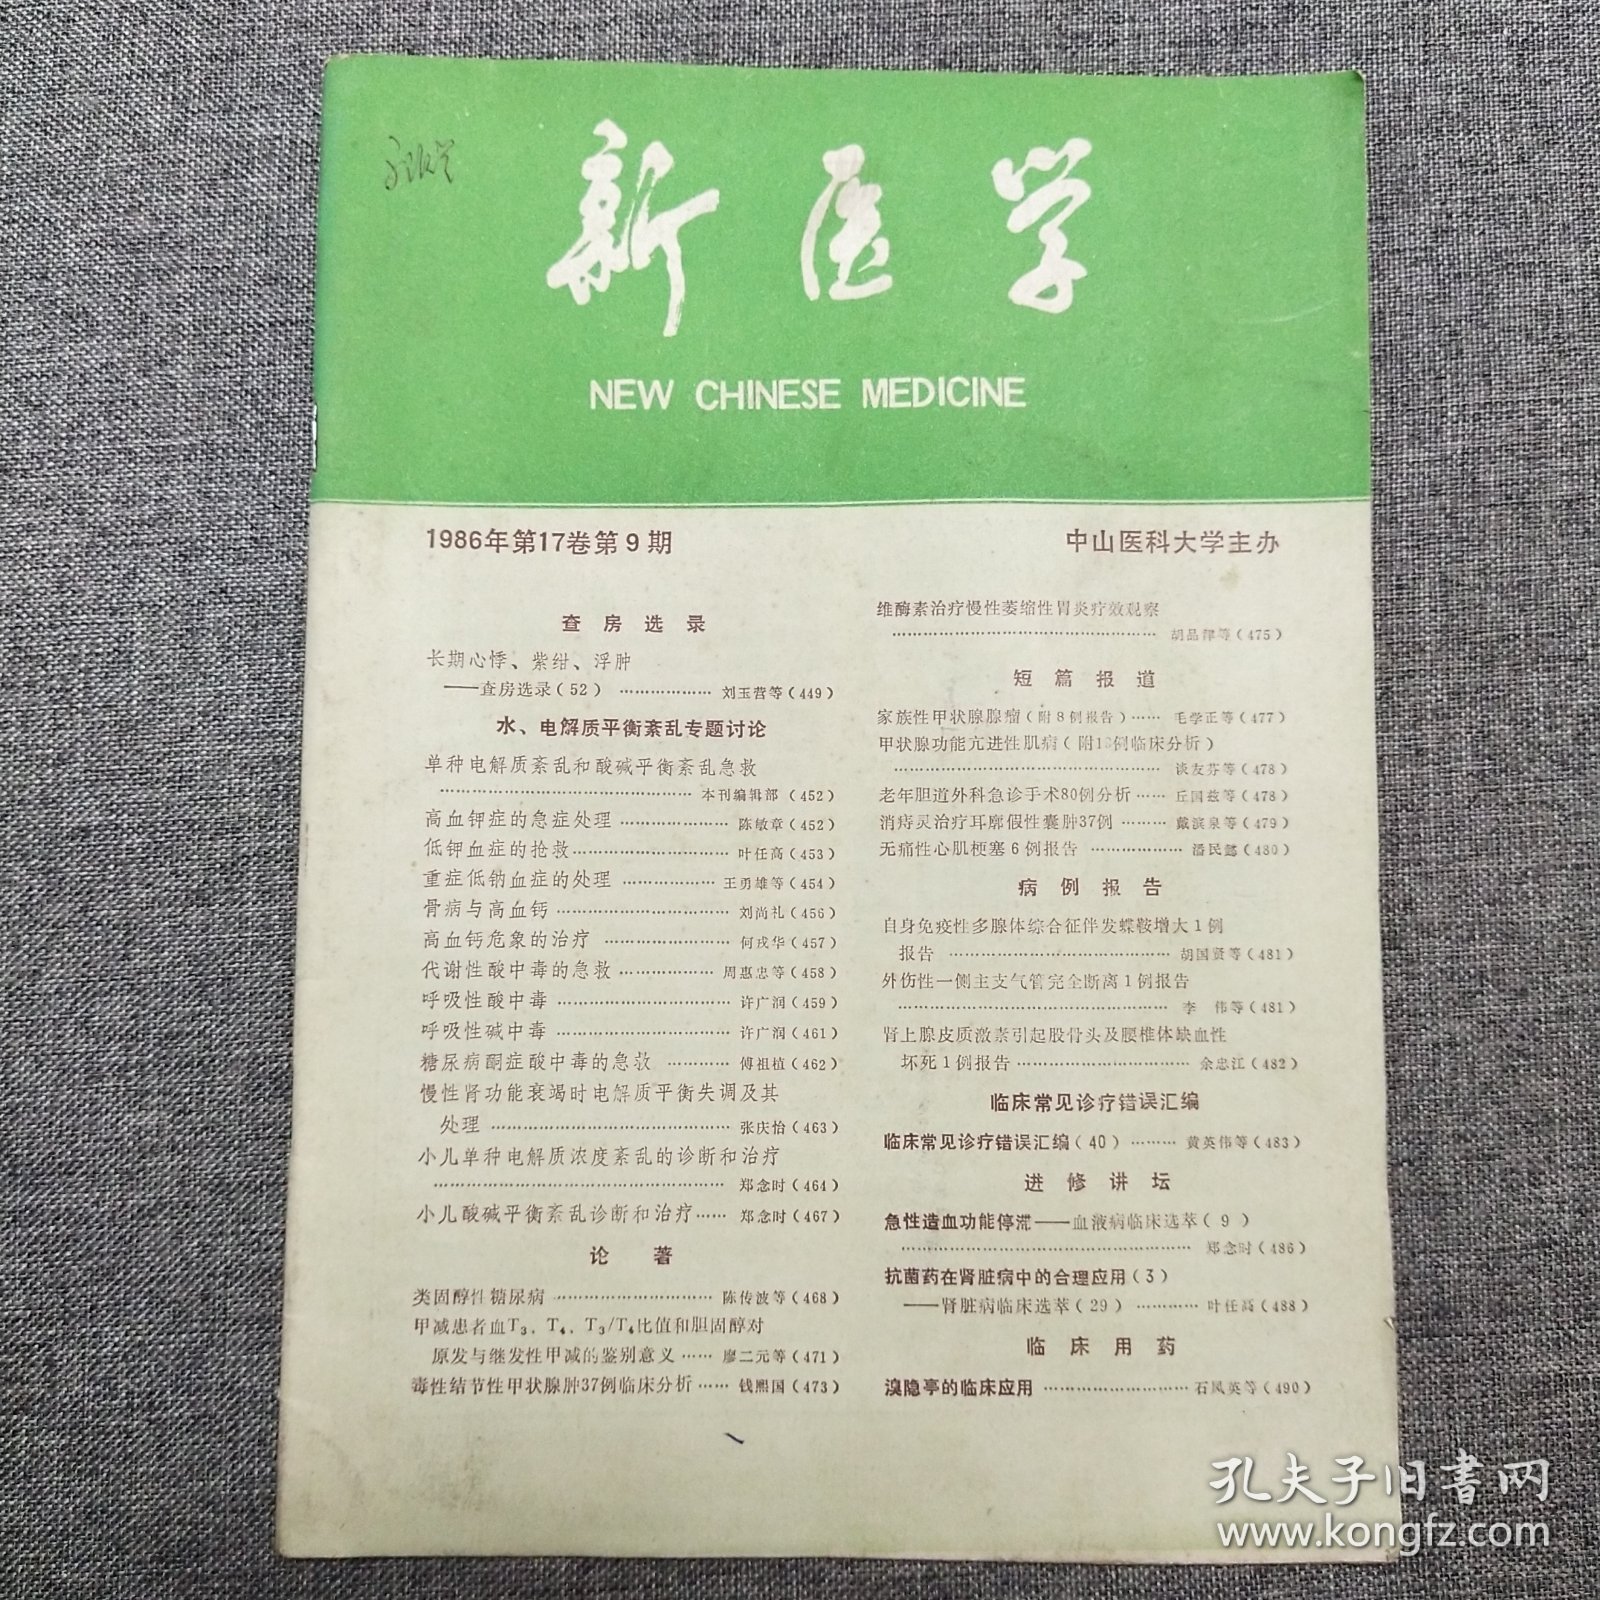 新医学
NEW CHINESE MEDICINE
1986年第17卷第9期
中山医科大学主办
查房选录
长期心悸、紫绀、浮肿
——查房选录(52) ……………… 刘玉营等(449)
水、电解质平衡紊乱专题讨论
单种电解质紊乱和酸碱平衡紊乱急救
……………………………… 本刊编辑部 (452)
高血钾症的急症处理 ……………… 陈敏章(452)
低钾血症的抢救……………………… 叶任高(453)
重症低钠血症的处理 ……………… 王勇雄等(454)
骨病与高血钙 ………………………… 刘尚礼(456)
高血钙危象的治疗 ………………… 何戎华(457)
代谢性酸中毒的急救 ……………… 周惠忠等(458)
呼吸性酸中毒 ………………………… 许广润(459)
呼吸性碱中毒 ………………………… 许广润(461)
糖尿病酮症酸中毒的急救 ………… 傅祖植(462)
慢性肾功能衰竭时电解质平衡失调及其
处理 ……………………………………… 张庆怡(463)
小儿单种电解质浓度紊乱的诊断和治疗
……………………………………… 郑念时(464)
小儿酸碱平衡紊乱诊断和治疗…… 郑念时(467)
论著
类固醇性糖尿病 ……………………… 陈传波等(468)
甲减患者血T₃、T₄、T₃/T₄比值和胆固醇对
原发与继发性甲减的鉴别意义 …… 廖二元等(471)
毒性结节性甲状腺肿37例临床分析 …… 钱熙国(473)
维酶素治疗慢性萎缩性胃炎疗效观察
……………………………………… 胡品津等(475)
短篇报道
家族性甲状腺腺瘤(附8例报告) …… 毛学正等(477)
甲状腺功能亢进性肌病(附1例临床分析)
……………………………………… 谈友芬等(478)
老年胆道外科急诊手术80例分析 …… 丘国兹等(478)
消痔灵治疗耳廓假性囊肿37例 ……… 戴滨泉等(479)
无痛性心肌梗塞6例报告 ……………… 潘民懿(480)
病例报告
自身免疫性多腺体综合征伴发蝶鞍增大1例
报告 ……………………………… 胡国贤等(481)
外伤性一侧主支气管完全断离1例报告
……………………………………… 李 伟等(481)
肾上腺皮质激素引起股骨头及腰椎体缺血性
坏死1例报告 ……………………… 余忠江(482)
临床常见诊疗错误汇编
临床常见诊疗错误汇编(40) ……… 黄英伟等(483)
进修讲坛
急性造血功能停滞——血液病临床选萃(9)
……………………………………… 郑念时(486)
抗菌药在肾脏病中的合理应用(3)
——肾脏病临床选萃(29) ………… 叶任高(488)
临床用药
溴隐亭的临床应用 ……………………… 石凤英等(490)
孔夫子旧书网
www.kongfz.com